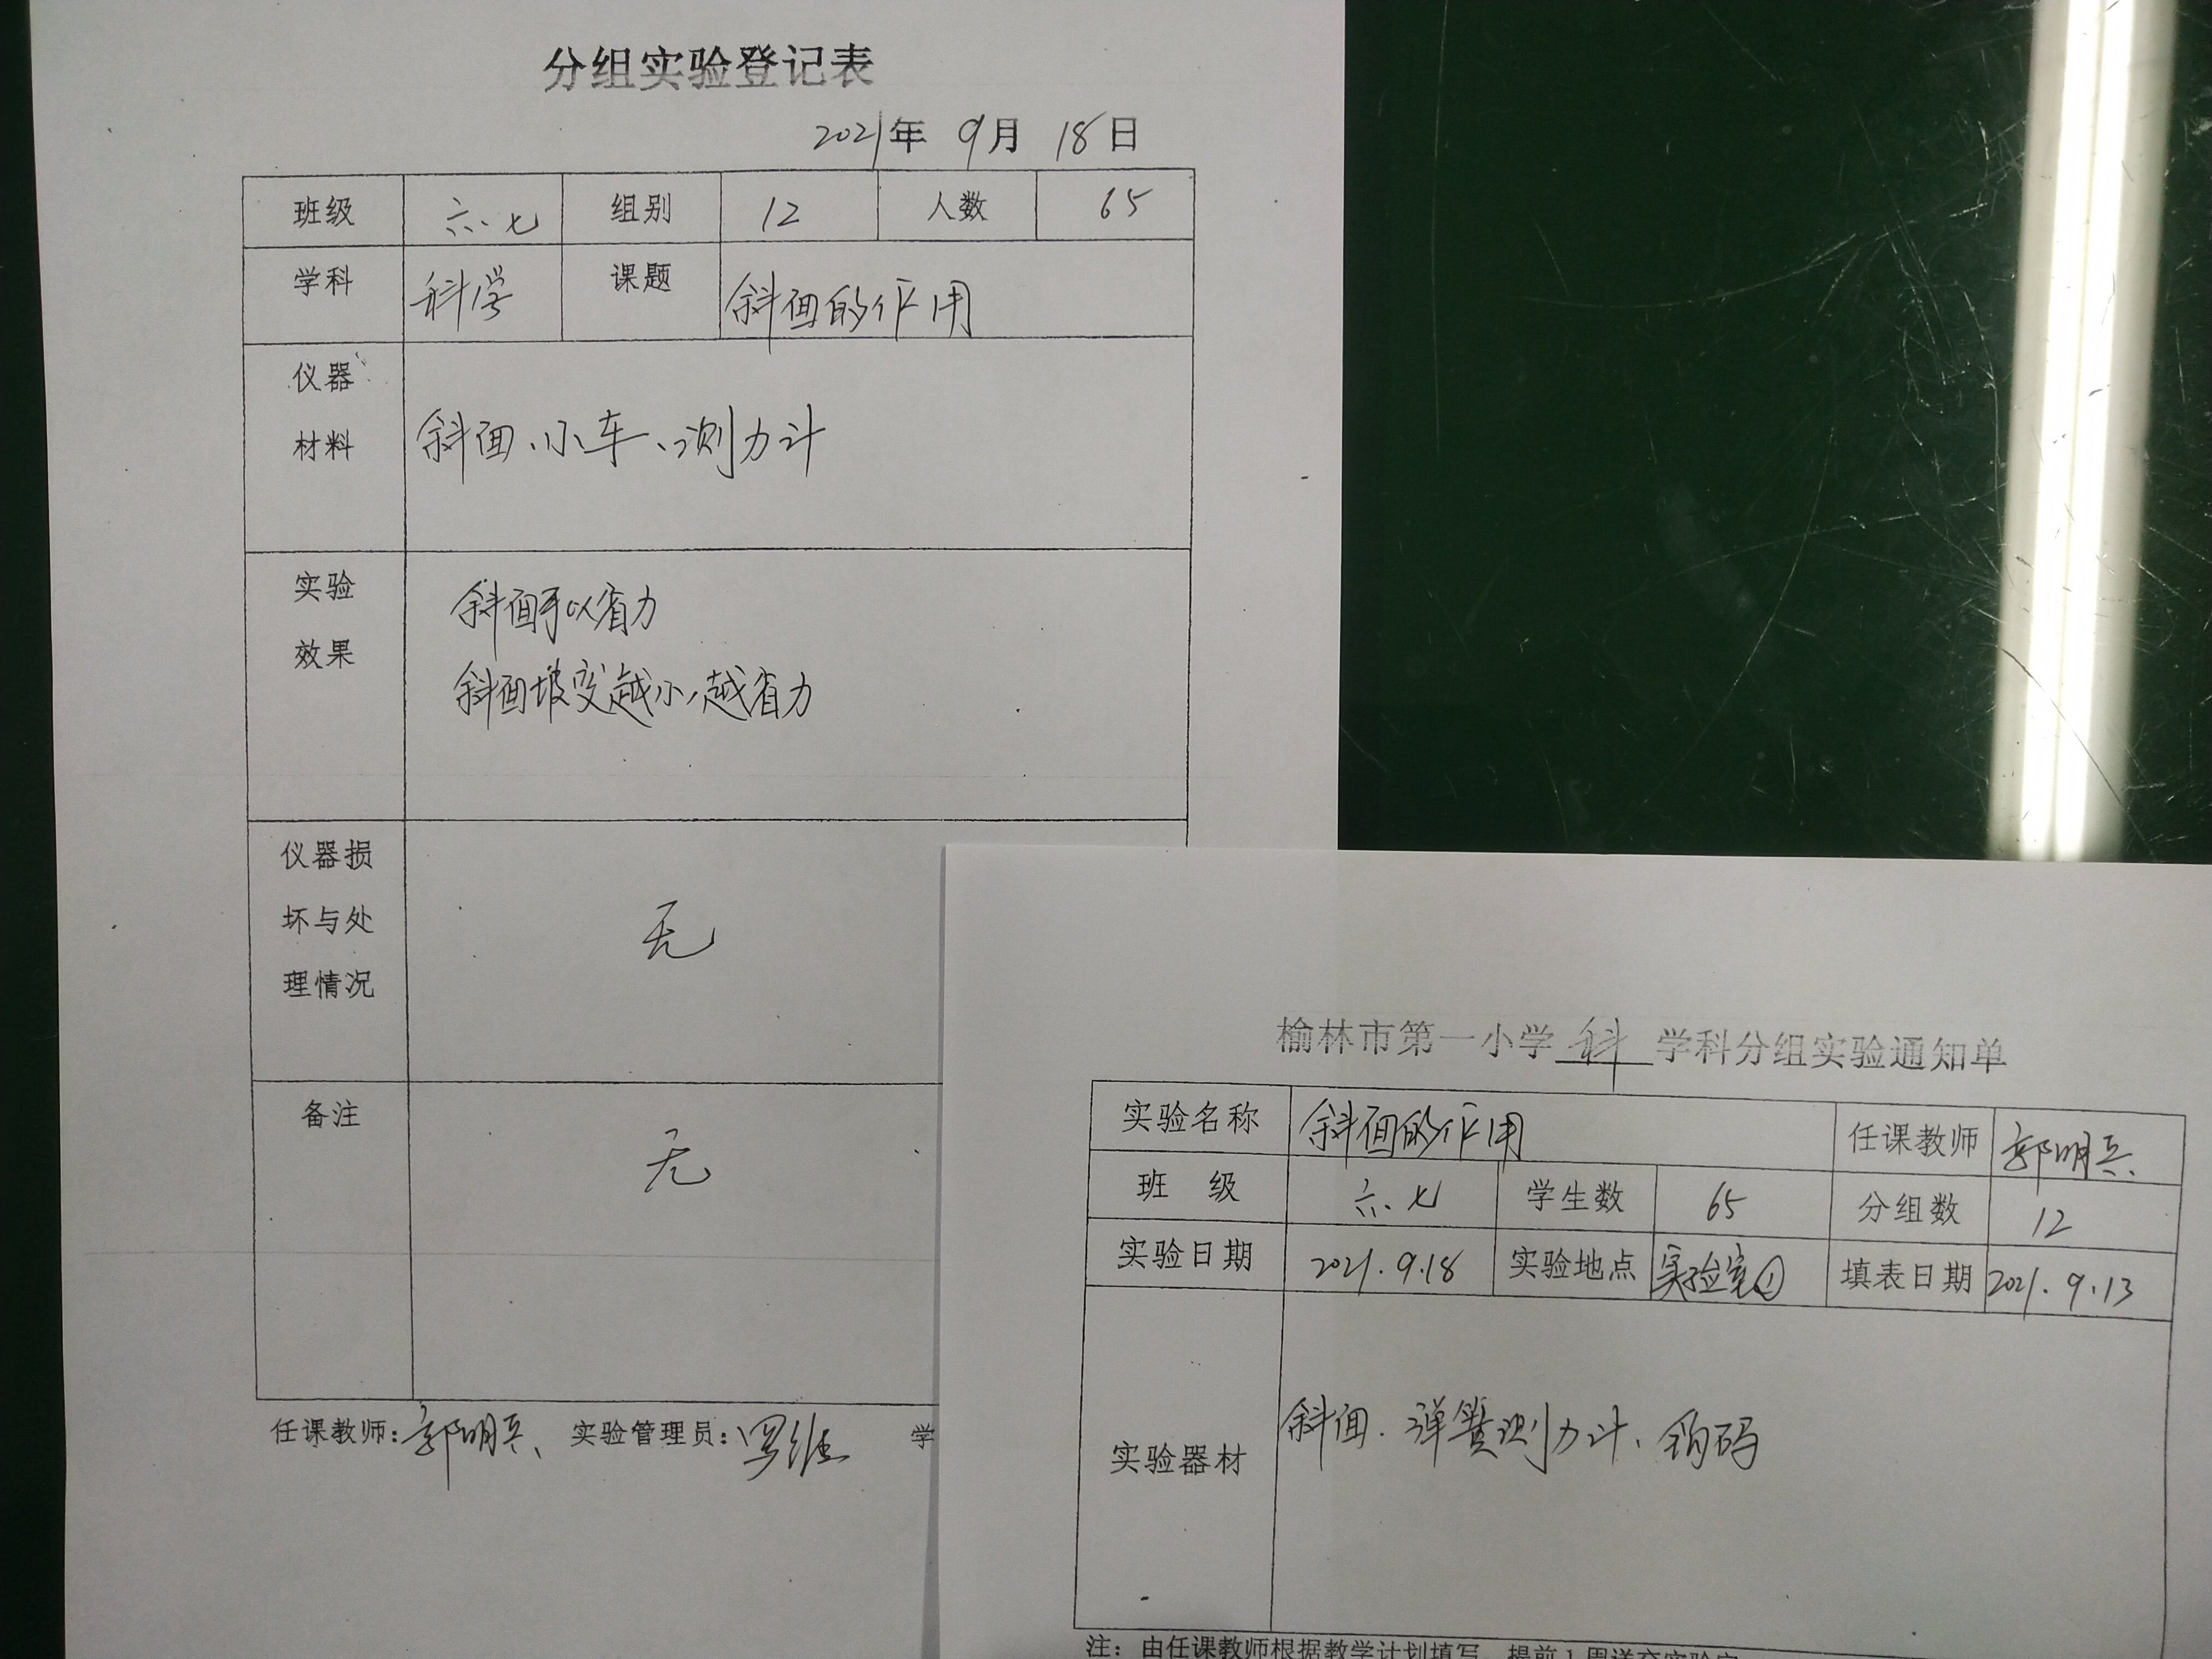 分组实验登记表
2021年 9月 18日
班级 六.七 组别 12 人数 65
学科 科学 课题 斜面的作用
仪器
材料 斜面、小车、测力计
实验 斜面可以省力
效果 斜面坡度越小,越省力
仪器损
坏与处 无
理情况
备注 无
任课教师:郭明兵、 实验管理员:罗 学
榆林市第一小学 科 学科分组实验通知单
实验名称 斜面的作用 任课教师 郭明兵
班 级 六.七 学生数 65 分组数 12
实验日期 2021.9.18 实验地点 实验室① 填表日期 2021.9.13
实验器材 斜面.弹簧测力计、钩码
注:由任课教师根据教学计划填写,提前1周送交实验室